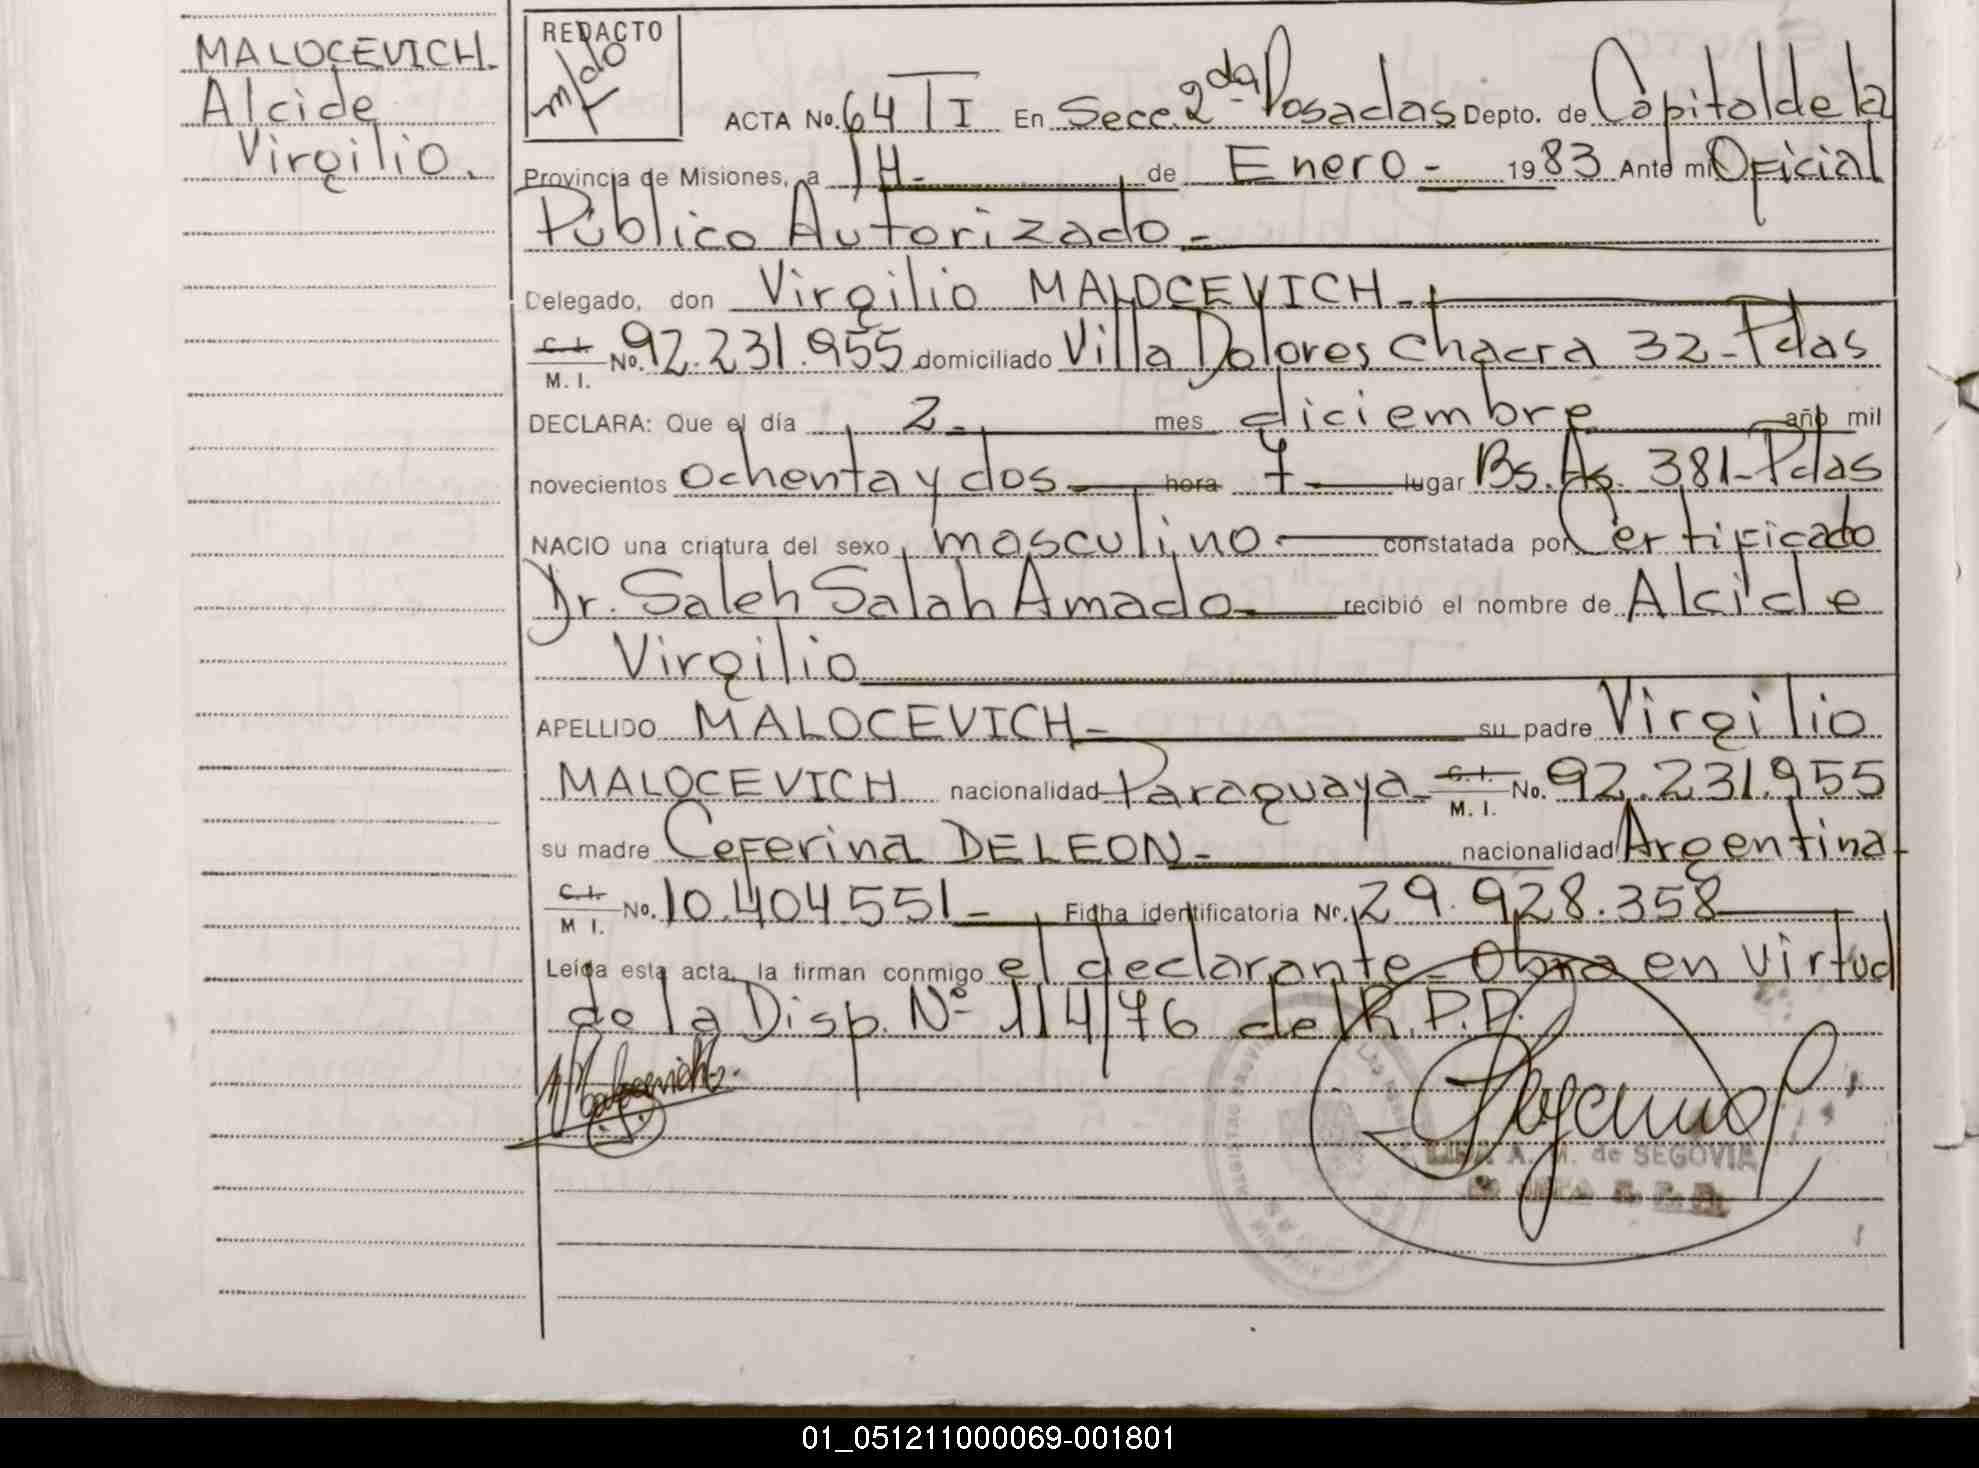 MALOCEVICH.
Alcide
Virgilio.
REDACTO
ACTA No. 64 TI En Secc. 2da Posadas Depto. de Capital de la
Provincia de Misiones, a 14- de Enero - 1983 Ante mi Oficial
Público Autorizado.-
Delegado, don Virgilio MALOCEVICH.-
C. I. M. I. No. 92.231.955 domiciliado Villa Dolores chacra 32-Pdas
DECLARA: Que el día 2- mes diciembre año mil
novecientos ochenta y dos- hora 7- lugar Bs.As. 381-Pdas
NACIO una criatura del sexo masculino- constatada por Certificado
Dr. Saleh Salah Amado- recibió el nombre de Alcide
Virgilio
APELLIDO MALOCEVICH- su padre Virgilio
MALOCEVICH nacionalidad Paraguaya- C. I. M. I. No. 92.231.955
su madre Ceferina DE LEON- nacionalidad Argentina-
C. I. M. I. No. 10.404.551- Ficha identificatoria Nr. 29.928.358
Leída esta acta, la firman conmigo el declarante- Obra en virtud
de la Disp. Nº 114/76 del R.P.P.
A. M. de SEGOVIA
01_051211000069-001801